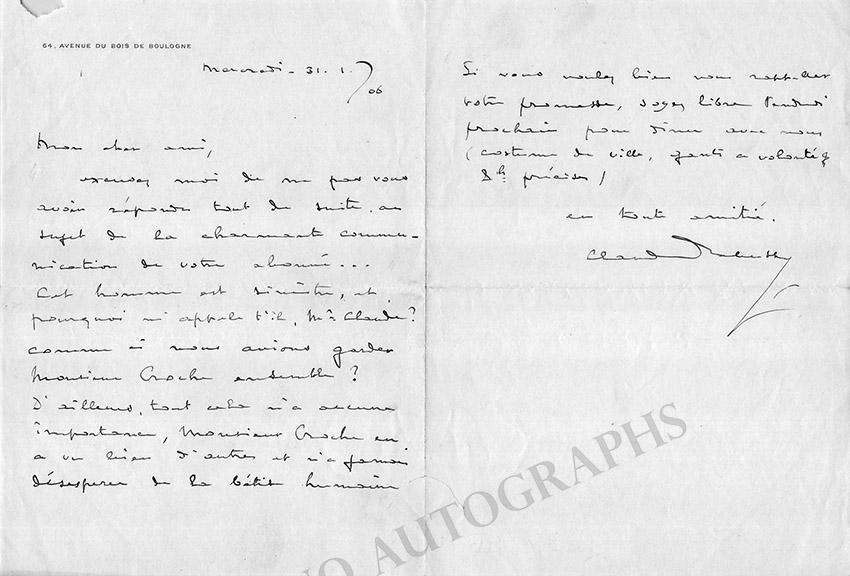 64, AVENUE DU BOIS DE BOULOGNE
Mercredi - 31. 1. 06
Mon cher ami,
excusez moi de ne pas vous
avoir répondu tout de suite au
sujet de la charmante commu-
nication de votre abonné...
Cet homme est sinistre, et
pourquoi m'appele t'il, Mr Claude?
comme si nous avions gardés
Monsieur Croche ensemble?
D'ailleurs, tout cela n'a aucune
importance, Monsieur Croche en
a vu bien d'autres et n'a jamais
désesperer de la bêtise humaine
Si vous voulez bien vous rappeller
votre promesse, soyez libre Vendredi
prochain pour diner avec nous
(costume de ville, gants a volonté,
8h précises)
en toute amitié.
Claude Debussy
NO AUTOGRAPHS